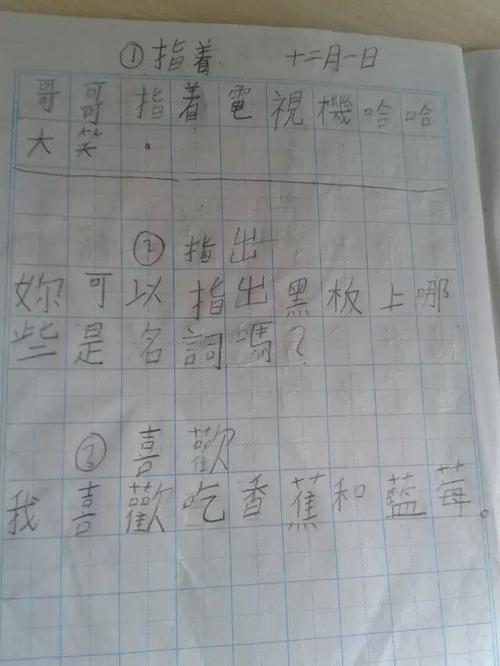 ①指着 十二月一日
哥哥指着電視機哈哈
大笑。
②指出
妳可以指出黑板上哪
些是名詞嗎?
③喜歡
我喜歡吃香蕉和藍莓。